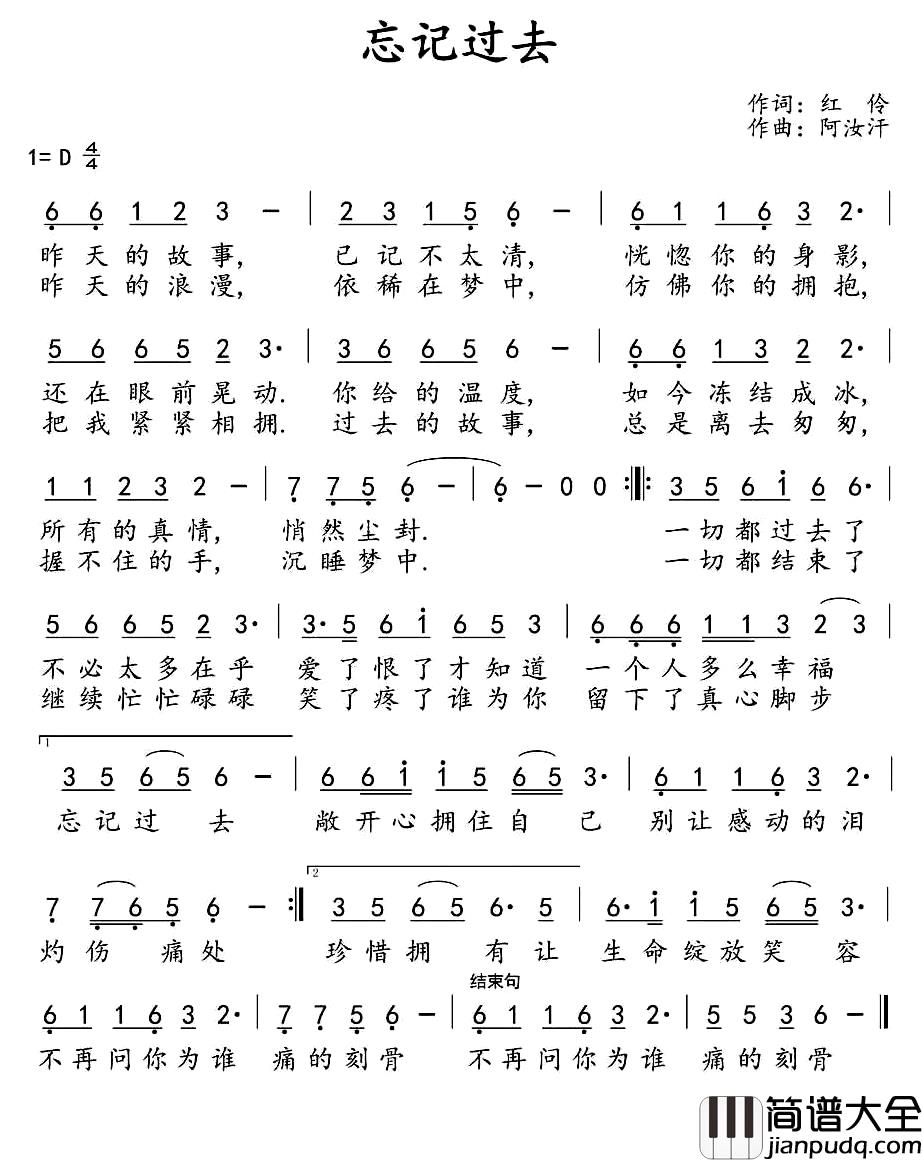 忘记过去
作词：红 伶
作曲：阿汝汗
1= D 4/4
6 6 1 2 3 — | 2 3 1 5 6 — | 6 1 1 6 3 2· |
昨天的故事, 已记不太清, 恍惚你的身影,
昨天的浪漫, 依稀在梦中, 仿佛你的拥抱,
5 6 6 5 2 3· | 3 6 6 5 6 — | 6 6 1 3 2 2· |
还在眼前晃动. 你给的温度, 如今冻结成冰,
把我紧紧相拥. 过去的故事, 总是离去匆匆,
1 1 2 3 2 — | 7 7 5 6 — | 6 — 0 0 :‖: 3 5 6 i 6 6·
所有的真情, 悄然尘封. 一切都过去了
握不住的手, 沉睡梦中. 一切都结束了
5 6 6 5 2 3· | 3· 5 6 i 6 5 3 | 6 6 6 1 1 3 2 3 |
不必太多在乎 爱了恨了才知道 一个人多么幸福
继续忙忙碌碌 笑了疼了谁为你 留下了真心脚步
1
3 5 6 5 6 — | 6 6 i i 5 6 5 3· | 6 1 1 6 3 2· |
忘记过 去 敞开心拥住自 己 别让感动的泪
2
7 7 6 5 6 — :‖ 3 5 6 5 6· 5 | 6· i i 5 6 5 3· |
灼伤 痛处 珍惜拥 有让 生命绽放笑 容
结束句
6 1 1 6 3 2· | 7 7 5 6 — | 6 1 1 6 3 2· | 5 5 3 6 — ‖
不再问你为谁 痛的刻骨 不再问你为谁 痛的刻骨
简谱大全
jianpudq.com